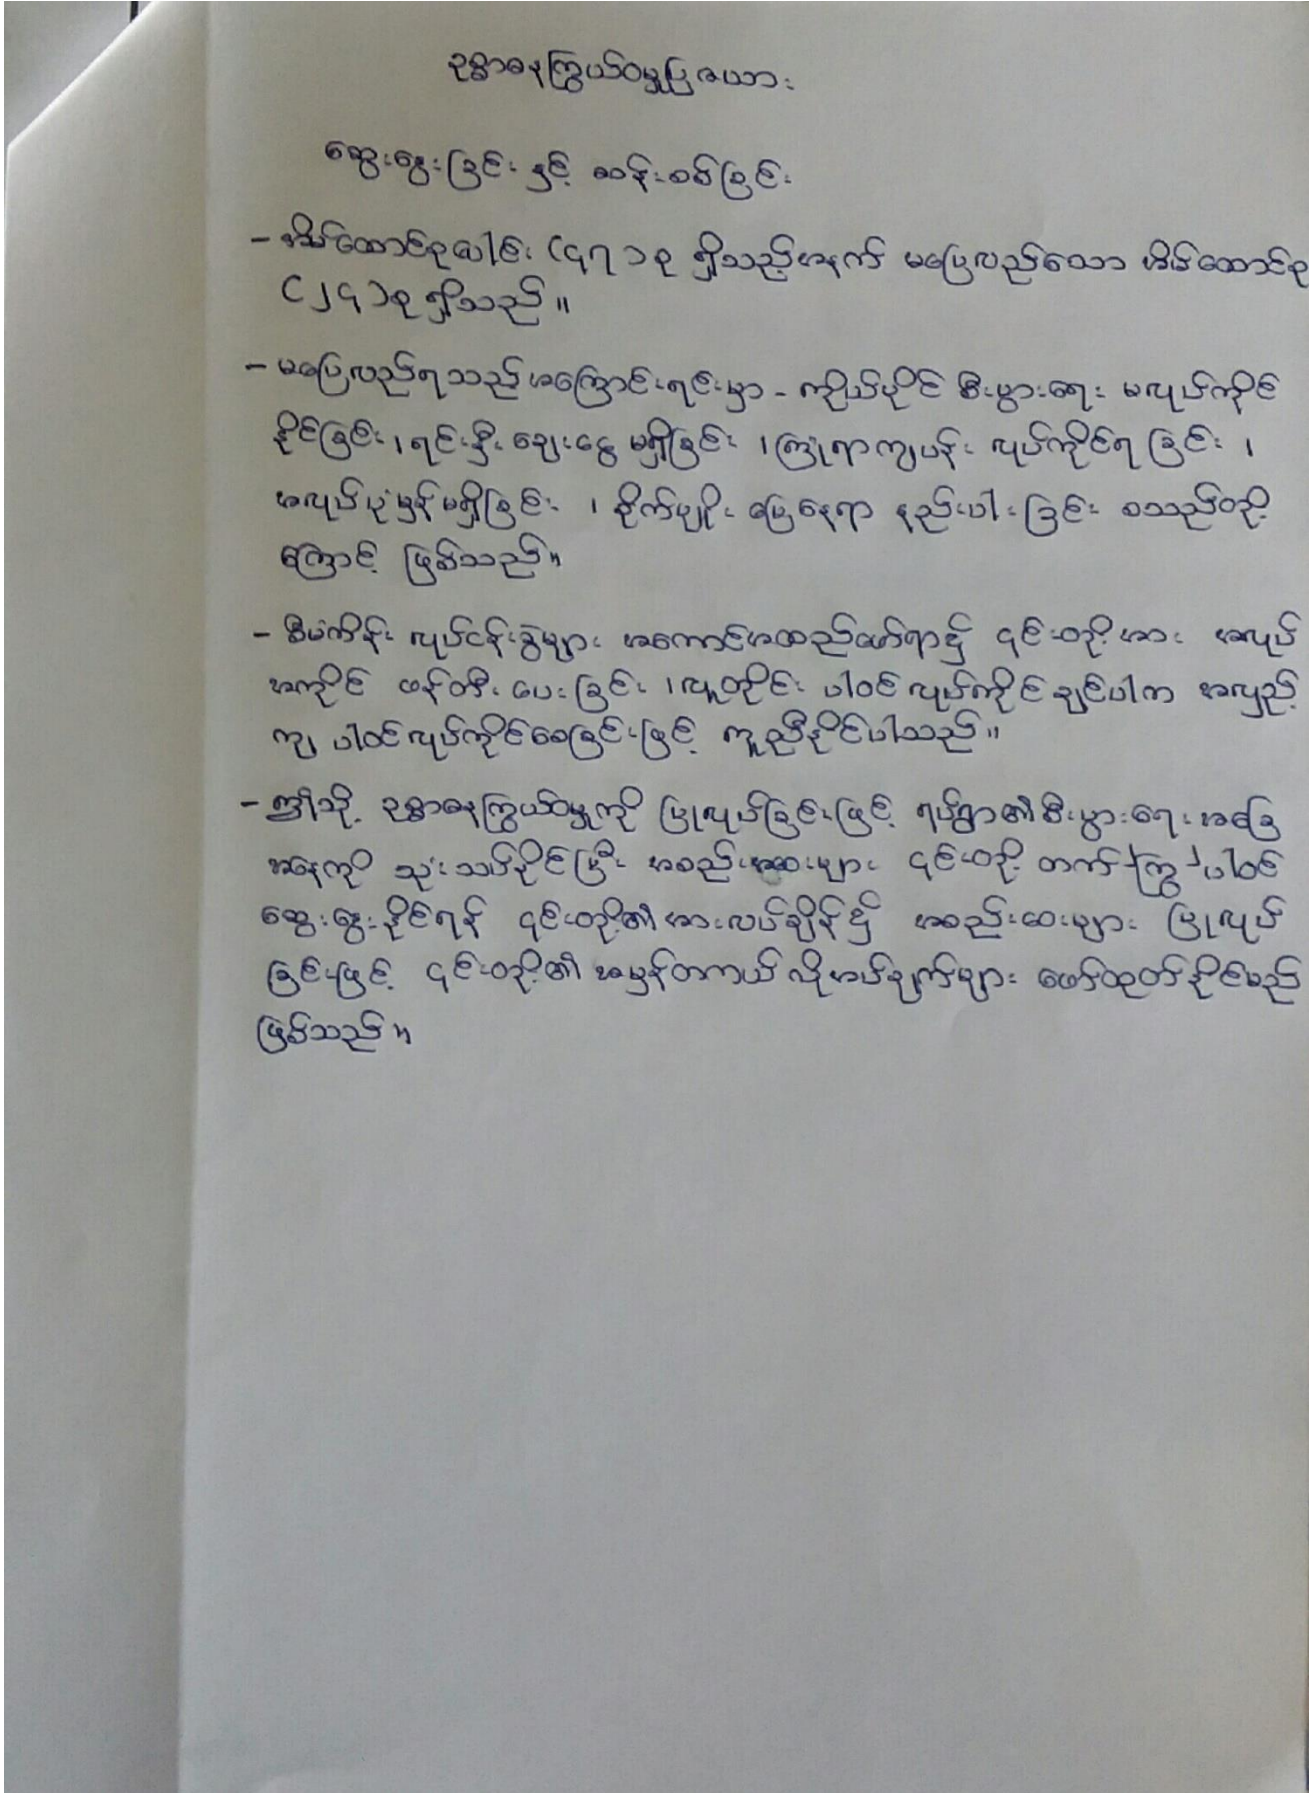 ဥစ္စာဓနကြွယ်ဝမှုပြဇယား
ဆွေးနွေးခြင်း နှင့် ဆန်းစစ်ခြင်း
- အိမ်ထောင်စုပေါင်း (၄၇)စု ရှိသည့်အနက် မပြေလည်သော အိမ်ထောင်စု
(၂၄)စု ရှိသည်။
- မပြေလည်ရသည့်အကြောင်းရင်းမှာ - ကိုယ်ပိုင် စီးပွားရေး မလုပ်ကိုင်
နိုင်ခြင်း ၊ ရင်းနှီးချေးငွေ မရှိခြင်း ၊ ကြုံရာကျပန်း လုပ်ကိုင်ရခြင်း ၊
အလုပ်ပုံမှန်မရှိခြင်း ၊ စိုက်ပျိုးမြေနေရာ နည်းပါးခြင်း စသည်တို့
ကြောင့် ဖြစ်သည်။
- စီမံကိန်း လုပ်ငန်းခွဲများ အကောင်အထည်ဖော်ရာ၌ ၎င်းတို့အား အလုပ်
အကိုင် ဖန်တီးပေးခြင်း ၊ လူတိုင်း ပါဝင်လုပ်ကိုင်ချင်ပါက အလှည့်
ကျ ပါဝင်လုပ်ကိုင်စေခြင်းဖြင့် ကူညီနိုင်ပါသည်။
- ဤသို့ ဥစ္စာဓနကြွယ်ဝမှုကို ပြုလုပ်ခြင်းဖြင့် ရပ်ရွာ၏စီးပွားရေးအခြေ
အနေကို သုံးသပ်နိုင်ပြီး အစည်းအဝေးများ ၎င်းတို့ တက်ကြွပါဝင်
ဆွေးနွေးနိုင်ရန် ၎င်းတို့၏အားလပ်ချိန်၌ အစည်းဝေးများ ပြုလုပ်
ခြင်းဖြင့် ၎င်းတို့၏ အမှန်တကယ်လိုအပ်ချက်များ ဖော်ထုတ်နိုင်မည်
ဖြစ်သည်။